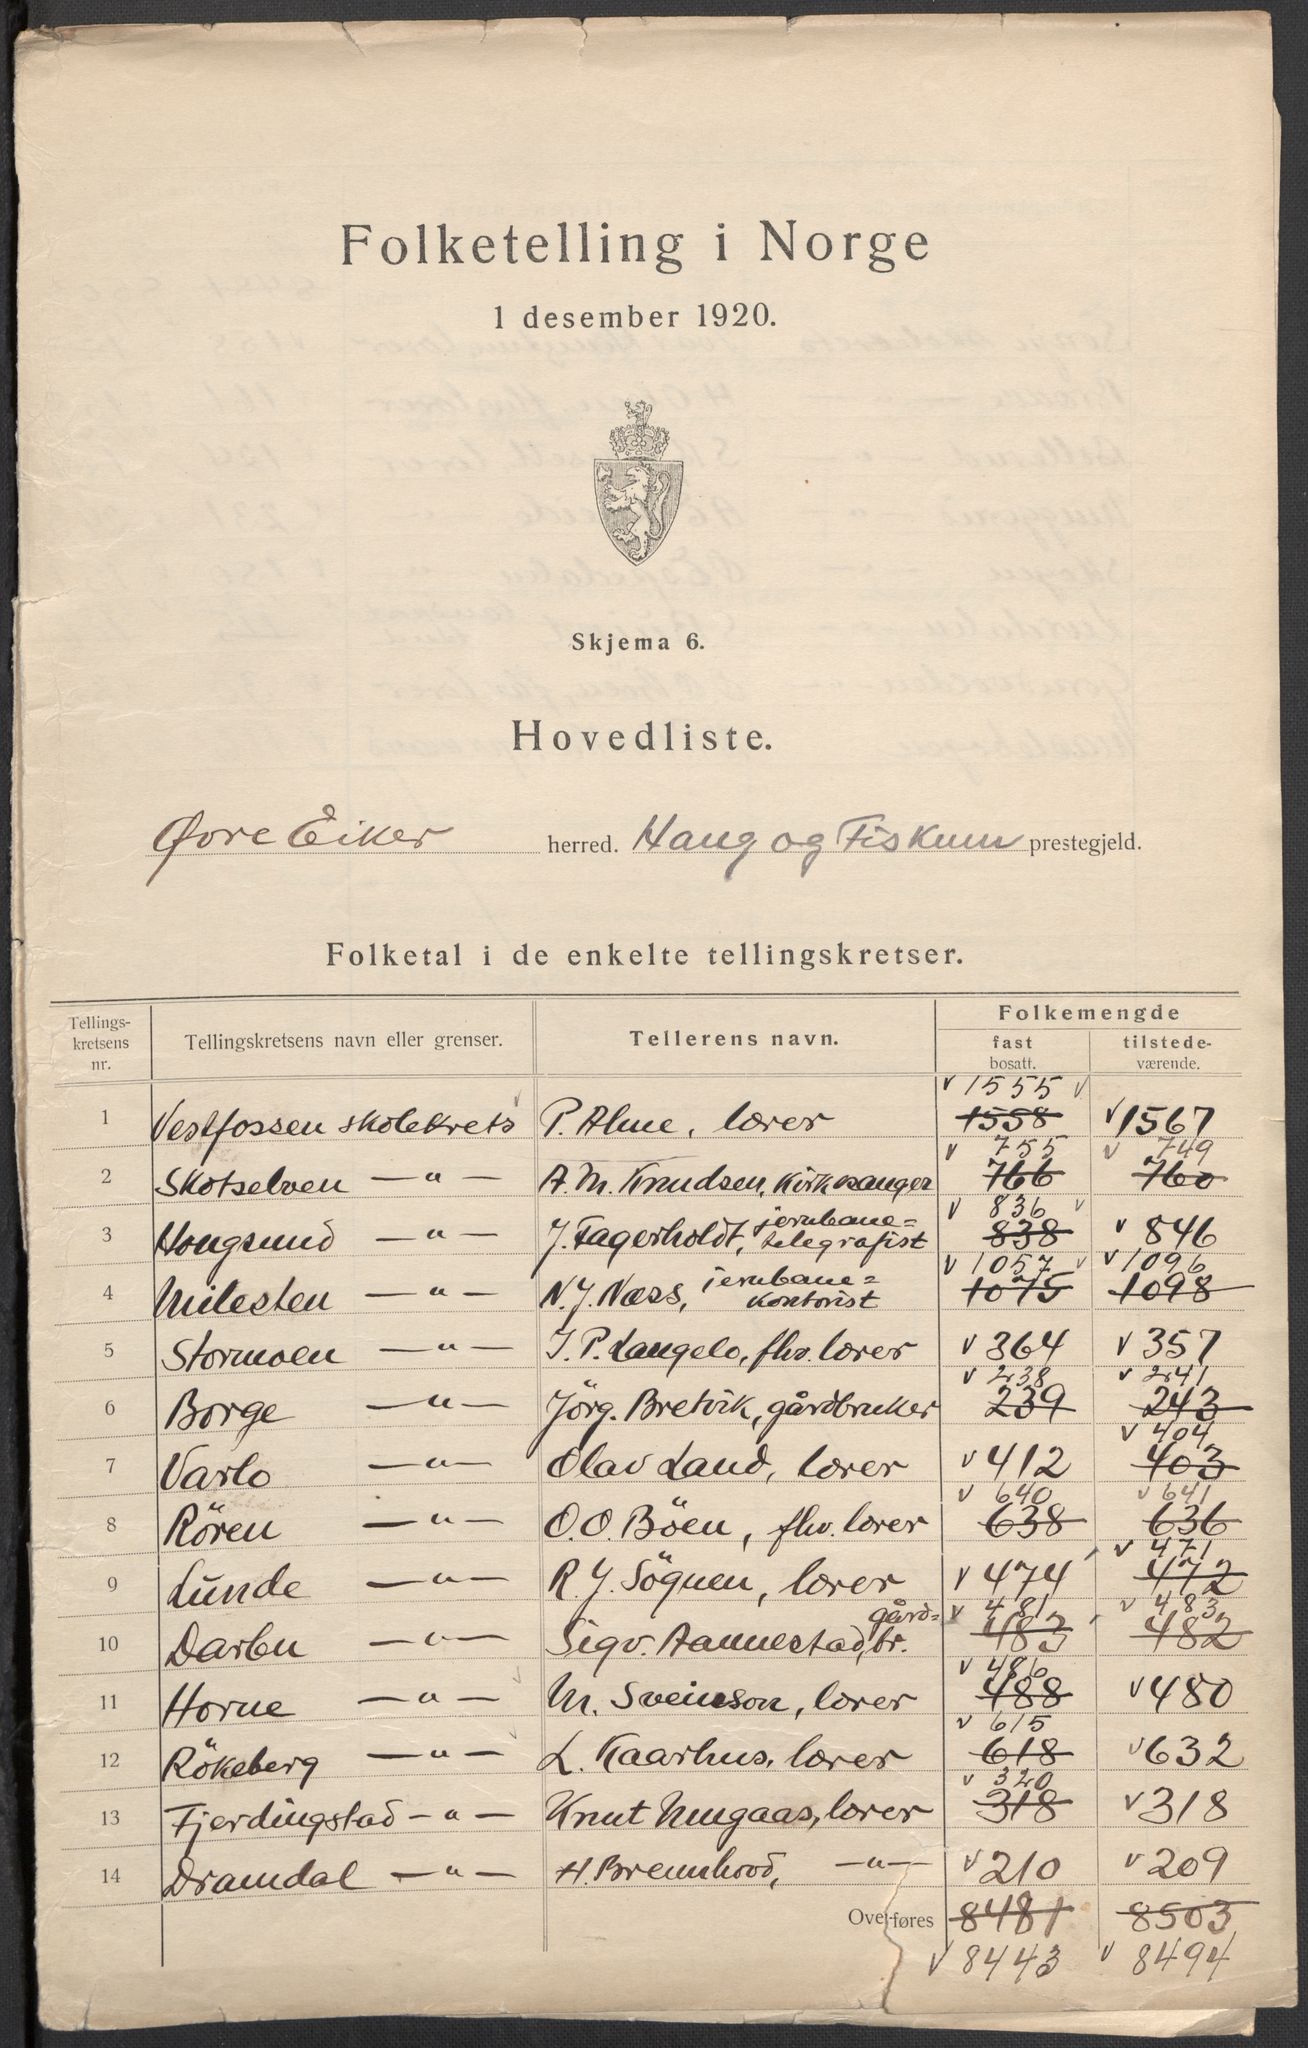 Folketelling i Norge
1 desember 1920.
Skjema 6.
Hovedliste.
Øvre Eiker herred. Haug og Fiskum prestegjeld.
Folketal i de enkelte tellingskretser.
Tellings-kretsens nr. Tellingskretsens navn eller grenser. Tellerens navn. Folkemengde
fast bosatt. tilstede-værende.
v 1555 v
1 Vestfossen skolekrets P. Alme, lærer 1558 v 1567
v 755 v 749
2 Skotselven — " — A. M. Knudsen, kirkesanger 766 760
v 836 v
3 Hougsund — " — J. Fagerholdt, jernbane=telegrafist 838 v 846
v 1057 v v 1096
4 Milesten — " — N. J. Næss, jernbane=kontorist 1075 1098
5 Stormoen — " — J. P. Langelo, fhv. lærer v 364 v 357
v 238 v 241
6 Borge — " — Jörg. Bretvik, gårdbruker 239 243
v 404
7 Varlo — " — Olav Land, lærer v 412 403
v 640 v 641
8 Rören — " — O. O. Böen, fhv. lærer 638 636
v 471
9 Lunde — " — R. J. Sögnen, lærer v 474 472
v 481 v 483
10 Darbu — " — Sigv. Aannestad, gård=br. 483 482
v 486
11 Horne — " — M. Sveinson, lærer 488 v 480
v 615
12 Rökeberg — " — L. Kaarhus, lærer 618 v 632
v 320
13 Fjerdingstad — " — Knut Mugaas, lærer 318 v 318
14 Dramdal — " — H. Brennhovd, — " — v 210 v 209
Overføres 8481 8503
v 8443 v 8494